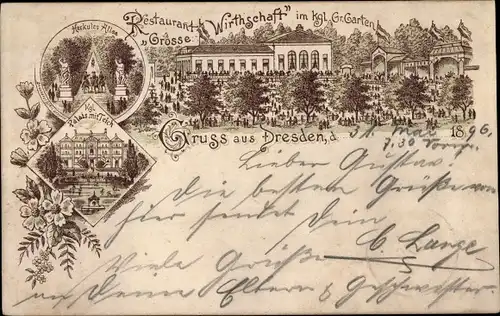 Restaurant "Grosse Wirthschaft" im kgl. Gr. Garten
Herkules Allee
kgl. Palais mit Teich
Gruss aus Dresden, d. 31. Mai 1896,
7,30 Vorm.
Lieber Gustav.
Die besten Grüße von
hier sendet Dir
C. Lange
Viele Grüße
an Deine Eltern & Geschwister.